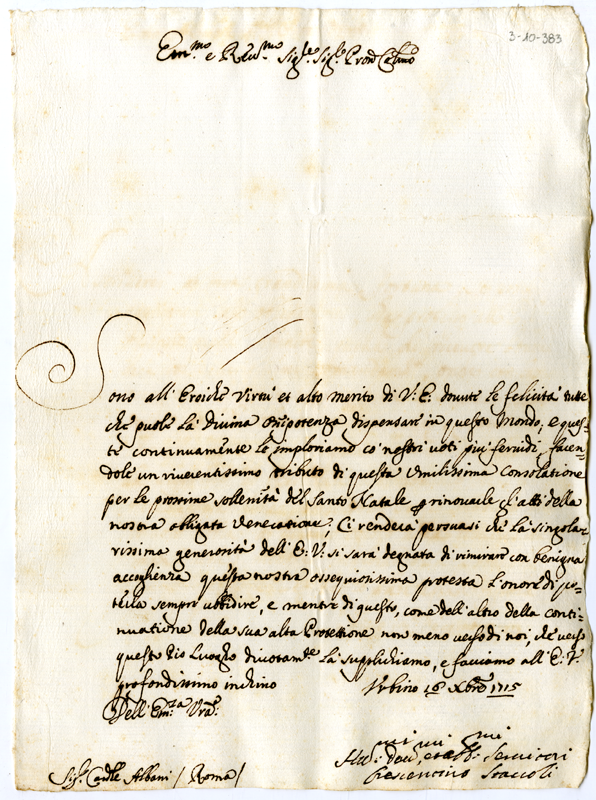 3-10-383
Em.mo e Reu.mo Sig.re Sig.re Pron Col.mo
Sono all'Eroiche Virtù et alto merito di V. E. douute le felicità tutte
che puole la Diuina onipotenza dispensare in questo Mondo, e ques-
te continuamente le imploriamo co' nostri uoti più feruidi, facen-
dole un riuerentissimo tributo di questa Vmilissima Consolatione
per le prossime sollenità del Santo Natale rinouarle gl'atti della
nostra obligata Veneratione; Ci renderà persuasi che la singola-
rissima generosità dell'E. V. si sarà degnata di rimirare con benigna
accoglienza questa nostra ossequiosissima protesta l'onore di po-
terla sempre ubbidire, e mentre di questo, come dell'altro della conti-
nuatione della sua alta Protettione non meno uerso di noi, che uerso
questo Pio Luogho diuotam.te la supplichiamo, e facciamo all'E. V.
profondissimo inchino
Vrbino 16 Xbre 1715
Dell'Em.za Vra.
Hu.mi Deu.mi et obb.mi Seruitori
Crescentino Staccoli
Sig.r Card.le Albani / Roma /